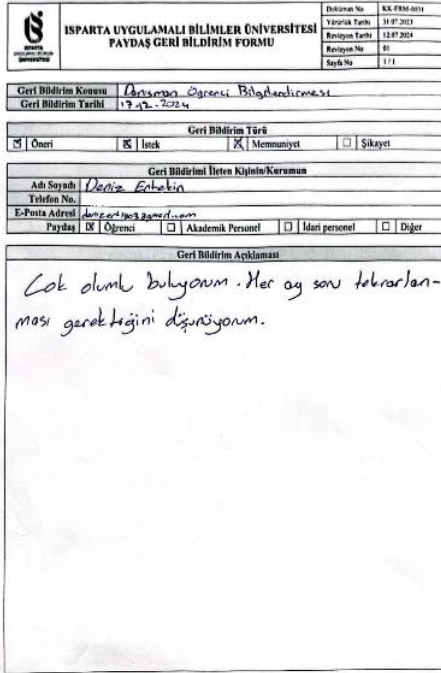 ISPARTA
UYGULAMALI BİLİMLER
ÜNİVERSİTESİ
ISPARTA UYGULAMALI BİLİMLER ÜNİVERSİTESİ
PAYDAŞ GERİ BİLDİRİM FORMU
Doküman No KK-FRM-0031
Yürürlük Tarihi 31.07.2023
Revizyon Tarihi 12.07.2024
Revizyon No 01
Sayfa No 1 / 1
Geri Bildirim Konusu Danışman Ögrenci Bilgilendirmesi
Geri Bildirim Tarihi 17-12-2024
Geri Bildirim Türü
Öneri İstek Memnuniyet Şikayet
Geri Bildirimi İleten Kişinin/Kurumun
Adı Soyadı Deniz
Telefon No.
E-Posta Adresi
Paydaş Öğrenci Akademik Personel İdari personel Diğer
Geri Bildirim Açıklaması
Çok olumlu buluyorum. Her ay sonu tekrarlan-
ması gerektiğini düşünüyorum.